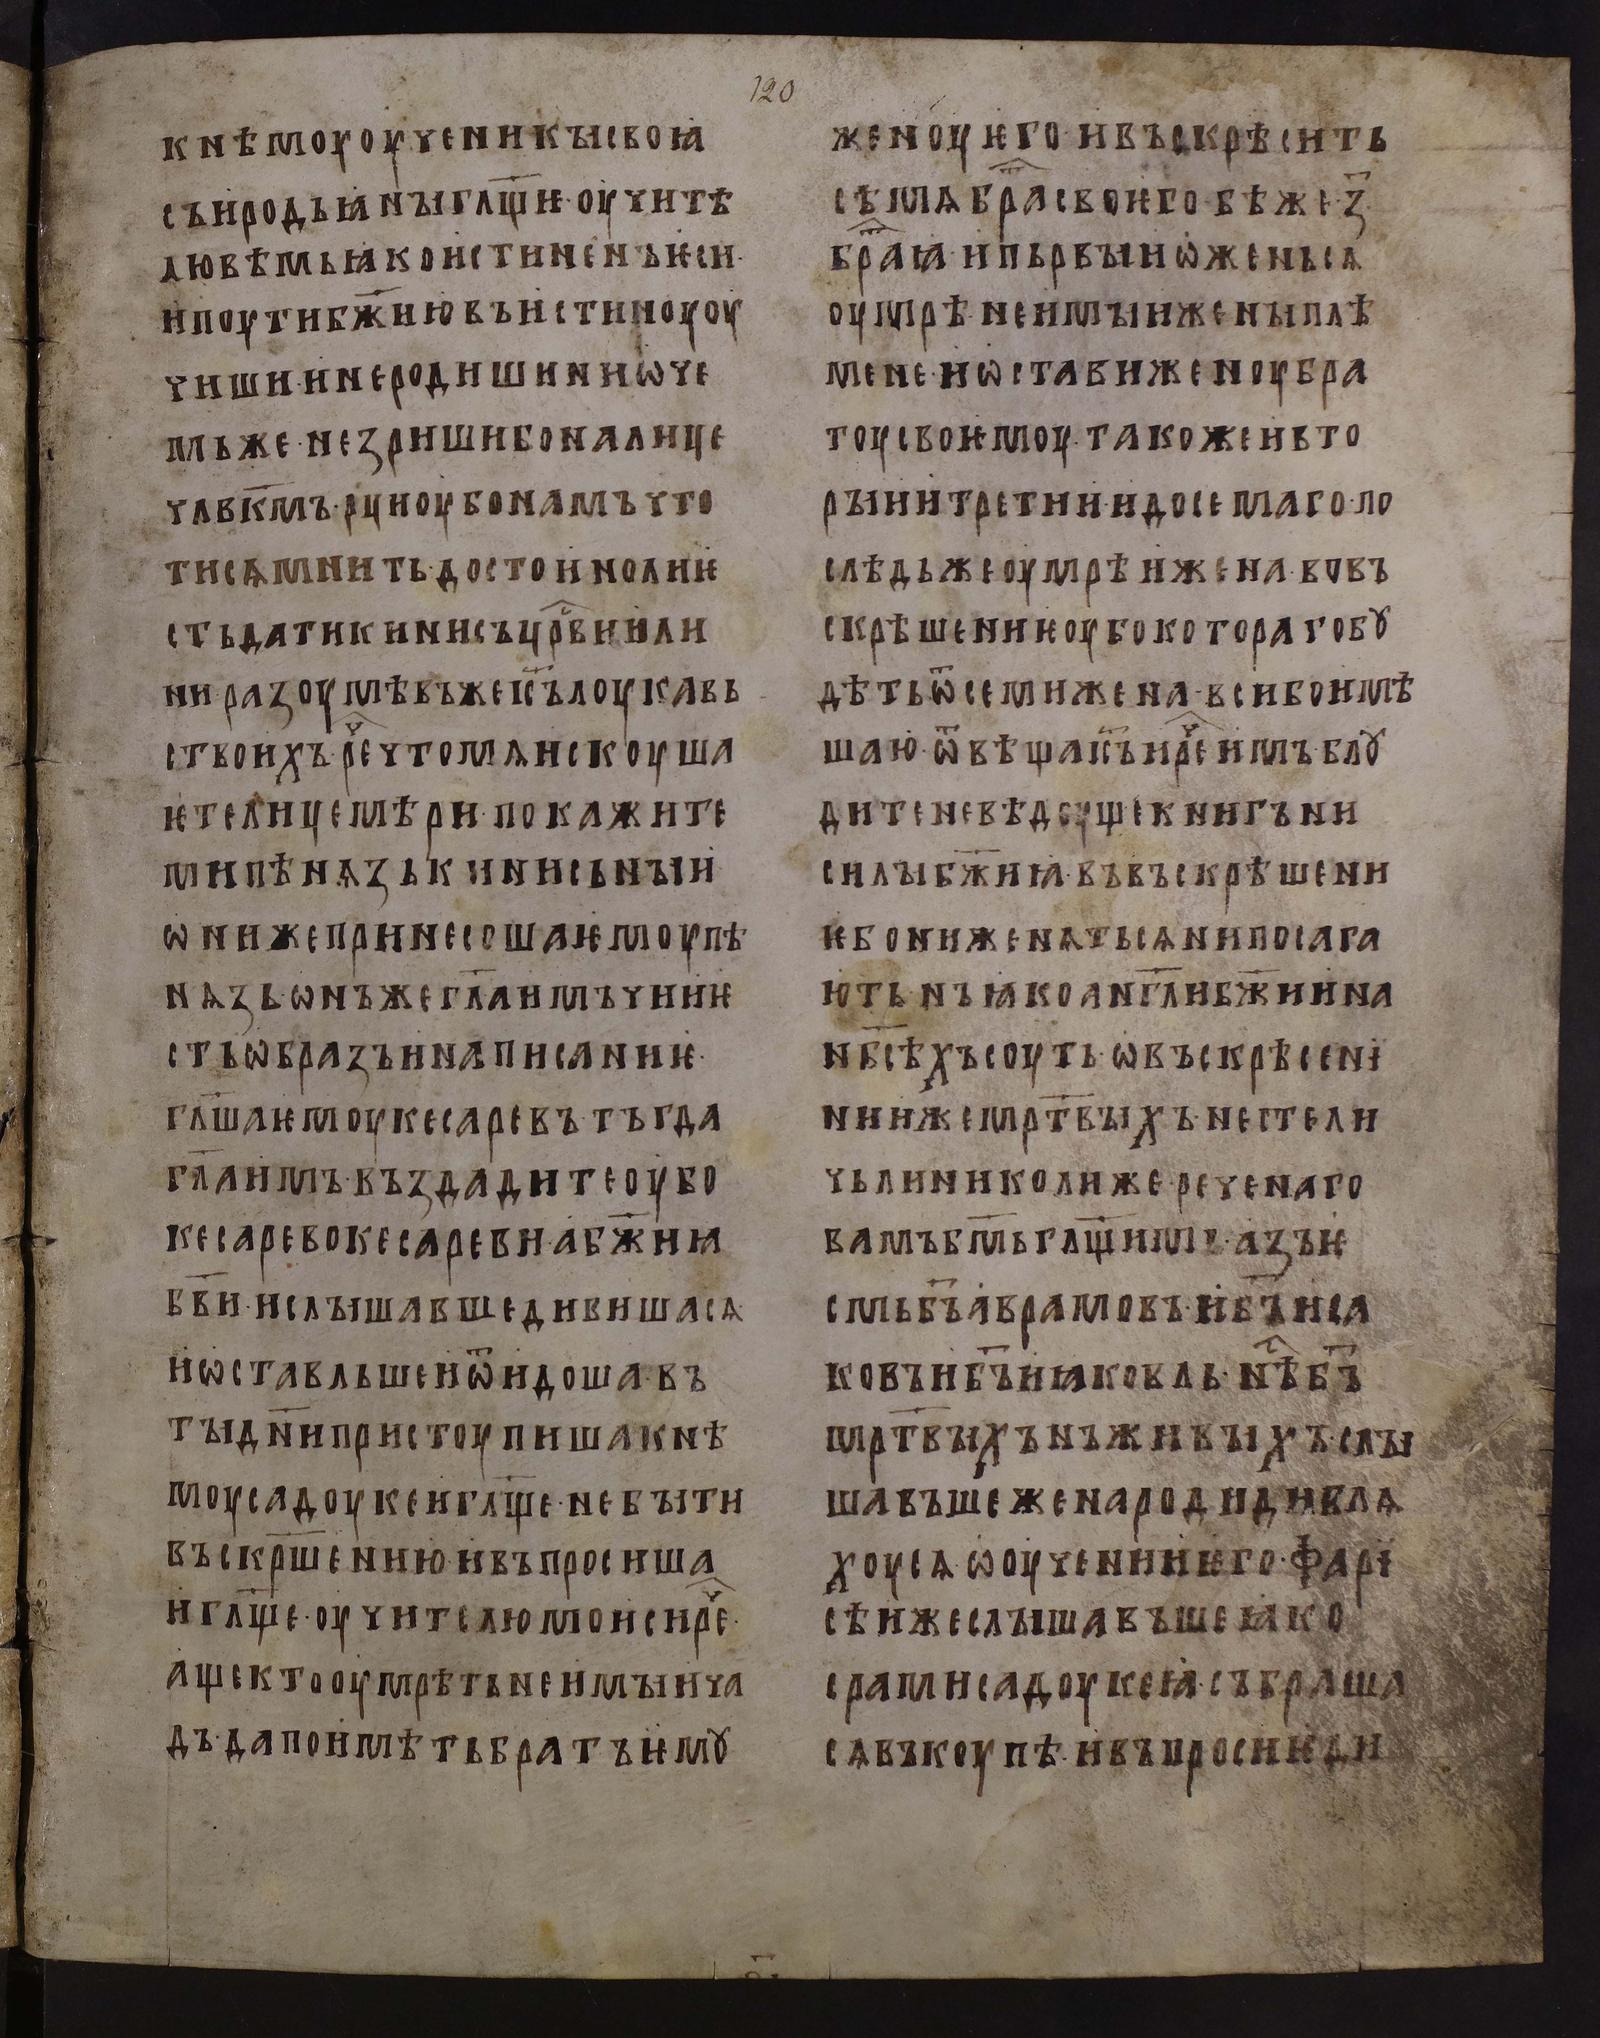 120
к нѣмоу оученикы своꙗ
съ иродьꙗны гл҃щѥ· оучитѣ
лю вѣмь ꙗко истиненъ ѥси·
и поути бж҃ию въ истиноу оу
чиши· и не родиши ни ѡ че
мьже· не зриши бо на лице
члвк҃мъ· рци оубо намъ что
ти сѧ мнить· достоино ли ѥ
сть дати кинисъ цр҃ви· или
ни· разоумѣвъ же іс҃ъ лоукавь
ство ихъ· реч҃ что мѧ искоуша
ѥте лицемѣри· покажите
ми пѣнѧзь киниcьныи·
ѡни же принесоша ѥмоу пѣ
нѧзь· ѡнъ же гл҃а имъ чии ѥ
сть ѡбразъ и написаниѥ·
гл҃ша ѥмоу кесаревъ· тъгда
гл҃а имъ· въздадите оубо
кесарево кесареви· а бж҃иꙗ
бв҃и· и слышавше дивишасѧ
и ѡставльше и ѿидоша· въ
ты дн҃и пристоупиша к нѣ
моу садоукеи гл҃ще· не быти
въскр҃шению· и въпросиша
и гл҃ще· оучителю моиси реч҃·
аще кто оумрѣть не имыи ча
дъ· да поиметь братъ ѥмꙋ
женоу ѥго· и въскрѣсить
сѣмѧ брат҃а своѥго· бѣ же з҃
брат҃аꙗ· и пьрвыи ѡженьсѧ
оумрѣ· не имыи же ны плѣ
мене· и ѡстави женоу бра
тоу своѥмоу· такоже и вьто
рыи и третии· и до семаго· по
слѣдь же оумрѣ и жена· в овъ
скрѣшениѥ оубо котораго бꙋ
дѣть ѿ семи жена· вси бо имѣ
шаю· ѿвѣща іс҃ъ и реч҃ имъ· блꙋ
дите не вѣдоуще книгъ ни
силы бж҃иꙗ· въ въскрѣшени
ѥ бо ни женѧтьсѧ ни посага
ють· нъ ꙗко англ҃и бж҃ии на
нб҃сѣхъ соуть· ѡ въскрѣсені
ни же мр҃твыхъ· нѣсте ли
чьли николиже· реченаго
вамъ бм҃ь гл҃щимь· азъ ѥ
смь бъ҃ аврамовъ· и бъ҃ иса
ковъ и бъ҃ иꙗковль· нѣс҃ бъ҃
мр҃твыхъ нъ живыхъ· слы
шавъше же народи дивлѧ
хоусѧ ѡ оучении ѥго· фарі
сѣи же слышавъше ꙗко
срами садоукеꙗ· събраша
сѧ въкоупѣ· и въпроси ѥди